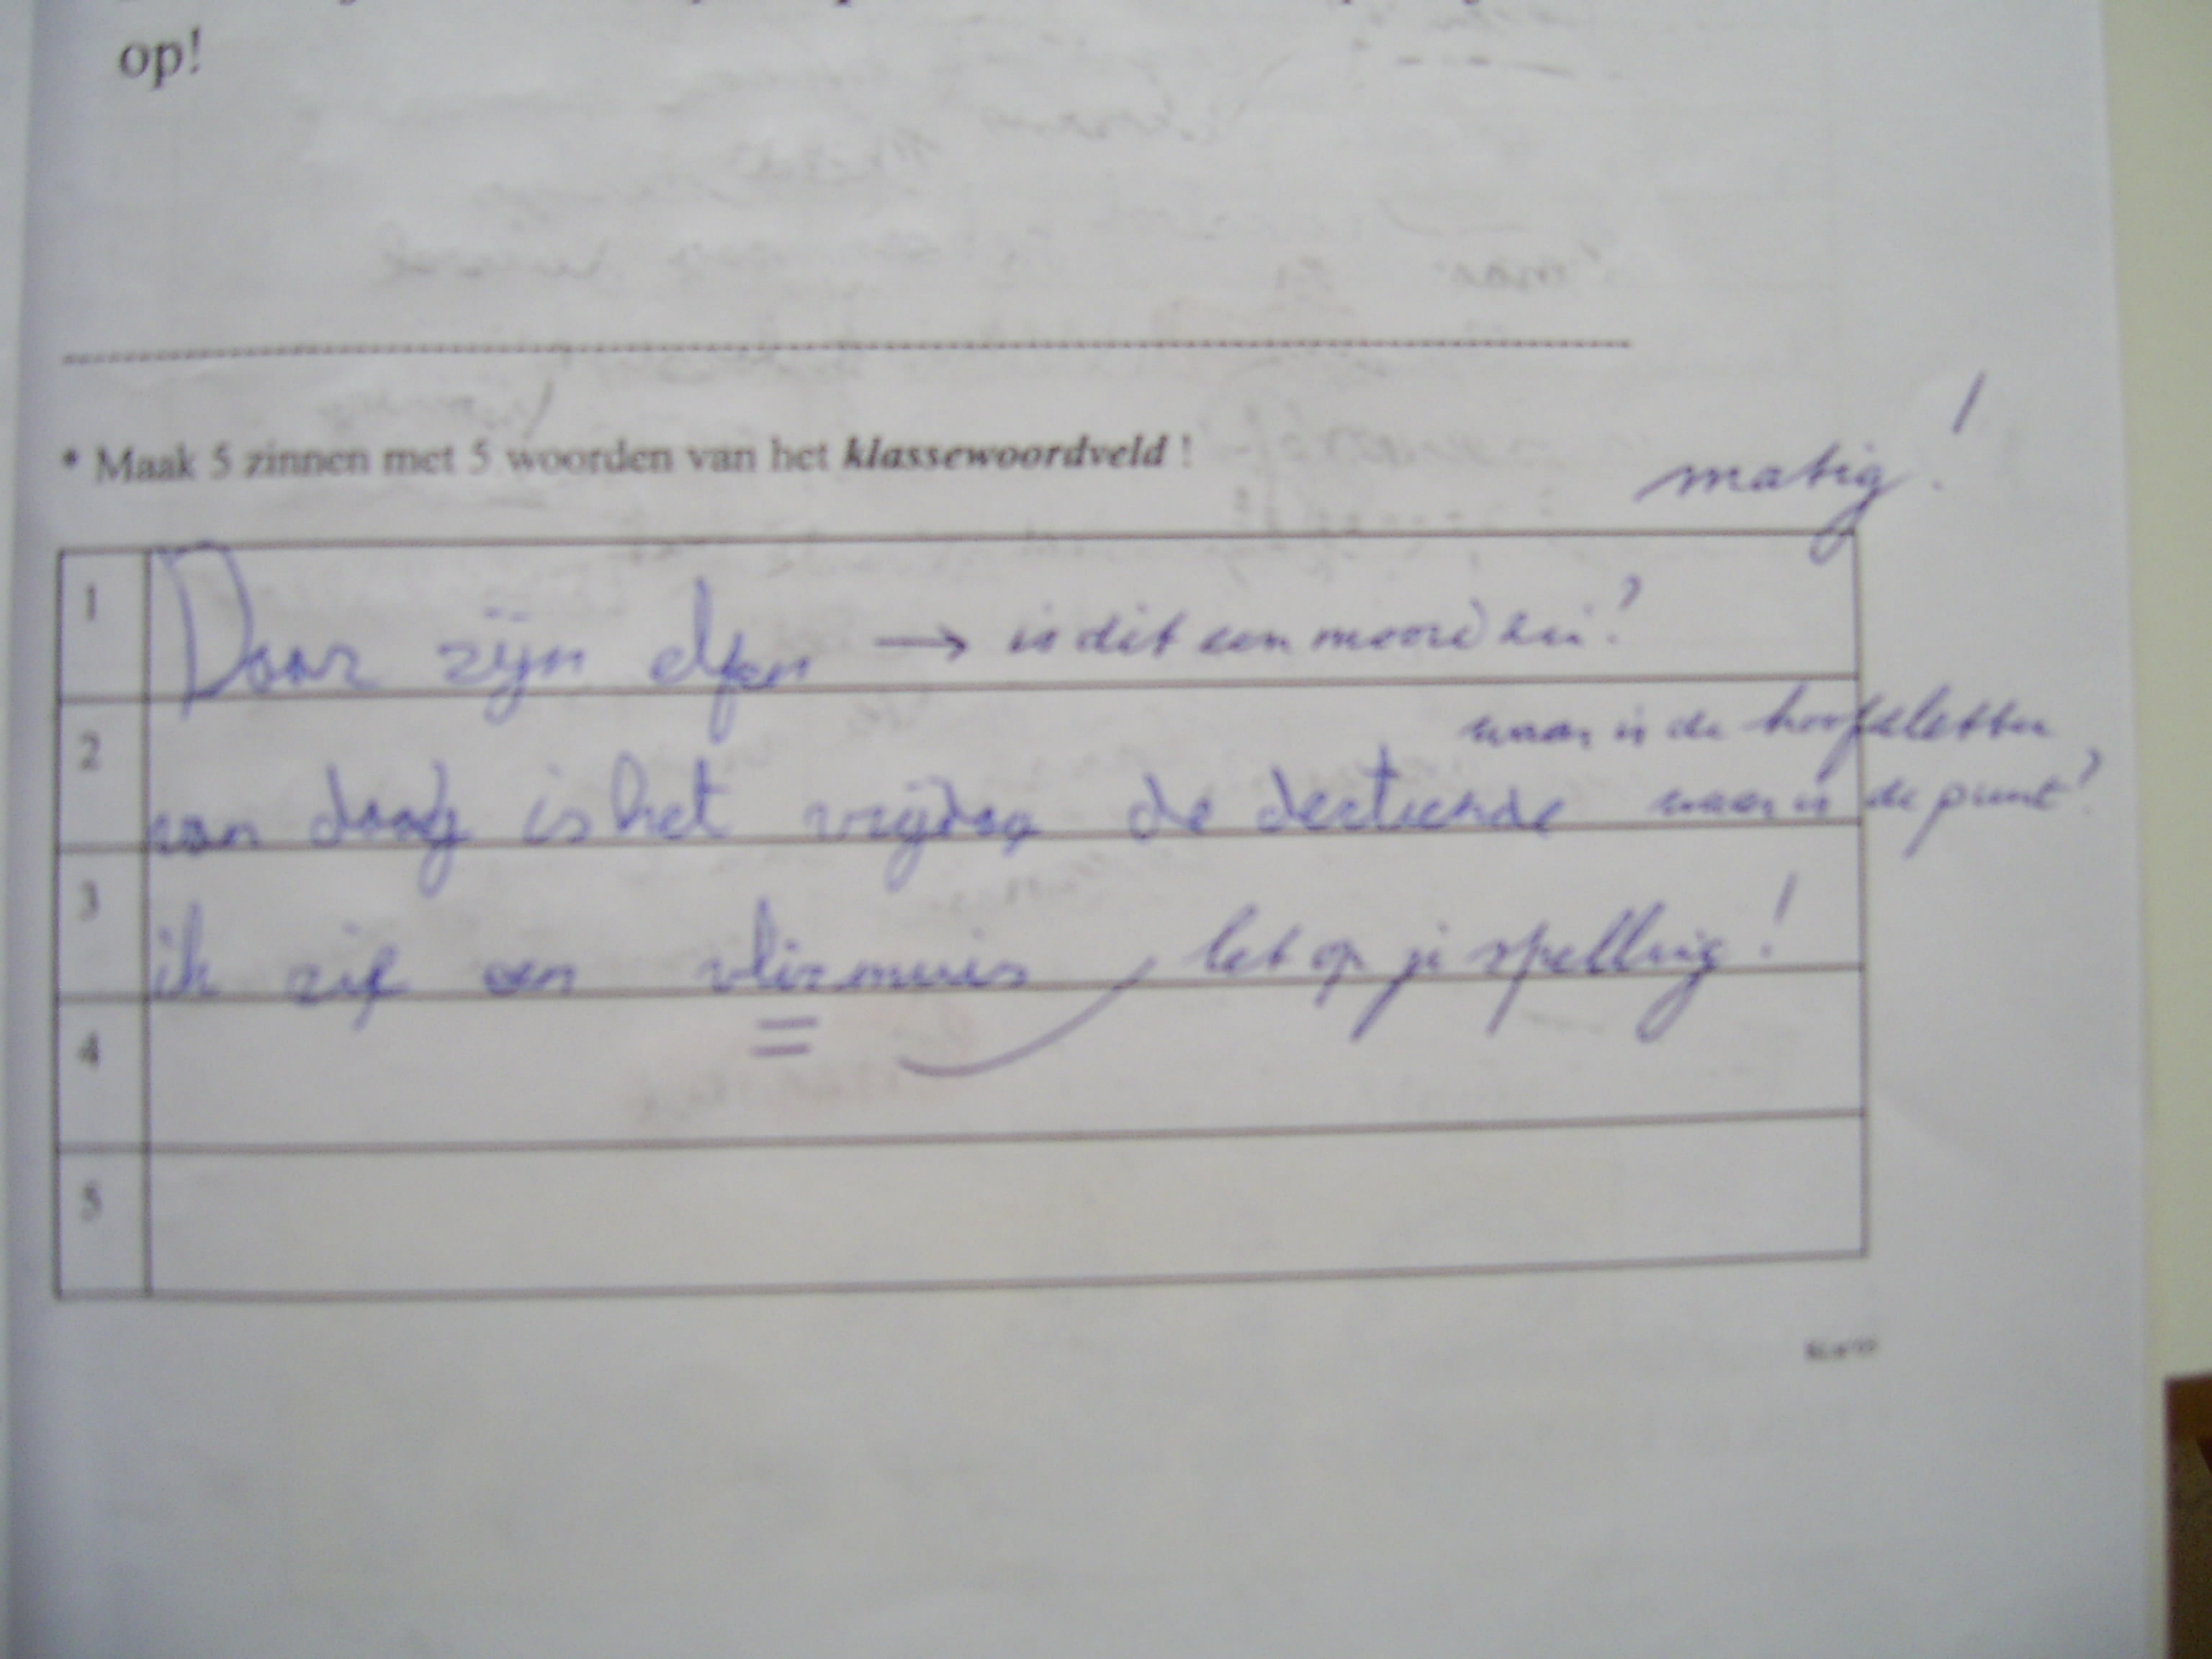 op!
* Maak 5 zinnen met 5 woorden van het klassewoordveld !
matig !
1 Daar zijn elfen → is dit een mooie zin?
waar is de hoofdletter
2 van daag is het vrijdag de dertiende waar is de punt?
3 ik zie een vlirmuis let op je spelling!
4
5